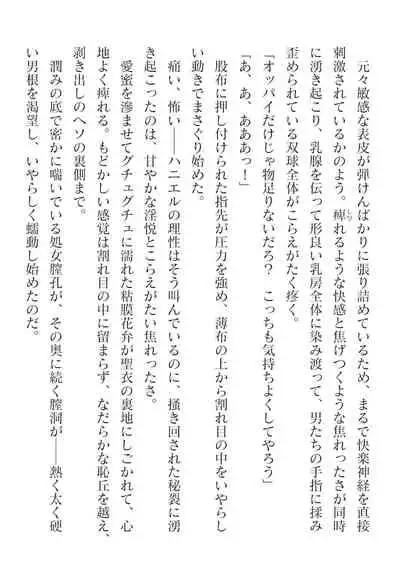 元々敏感な表皮が弾けんばかりに張り詰めているため、まるで快楽神経を直接
刺激されているかのよう。痺れるような快感と焦げつくような焦れったさが同時
に湧き起こり、乳腺を伝って形良い乳房全体に染み渡って、男たちの手指に揉み
歪められている双球全体がこらえがたく疼く。
「オッパイだけじゃ物足りないだろ？　こっちも気持ちよくしてやろう」
「あ、あ、あああっ！」
股布に押し付けられた指先が圧力を強め、薄布の上から割れ目の中をいやらし
い動きでまさぐり始めた。
痛い、怖い――ハニエルの理性はそう叫んでいるのに、掻き回された秘裂に湧
き起こったのは、甘やかな淫悦とこらえがたい焦れったさ。
愛蜜を滲ませてグチュグチュに濡れた粘膜花弁が聖衣の裏地にしごかれて、心
地よく痺れる。もどかしい感覚は割れ目の中に留まらず、なだらかな恥丘を越え、
剥き出しのヘソの裏側まで。
潤みの底で密かに喘いでいる処女膣孔が、その奥に続く膣洞が――熱く太く硬
い男根を渇望し、いやらしく蠕動し始めたのだ。